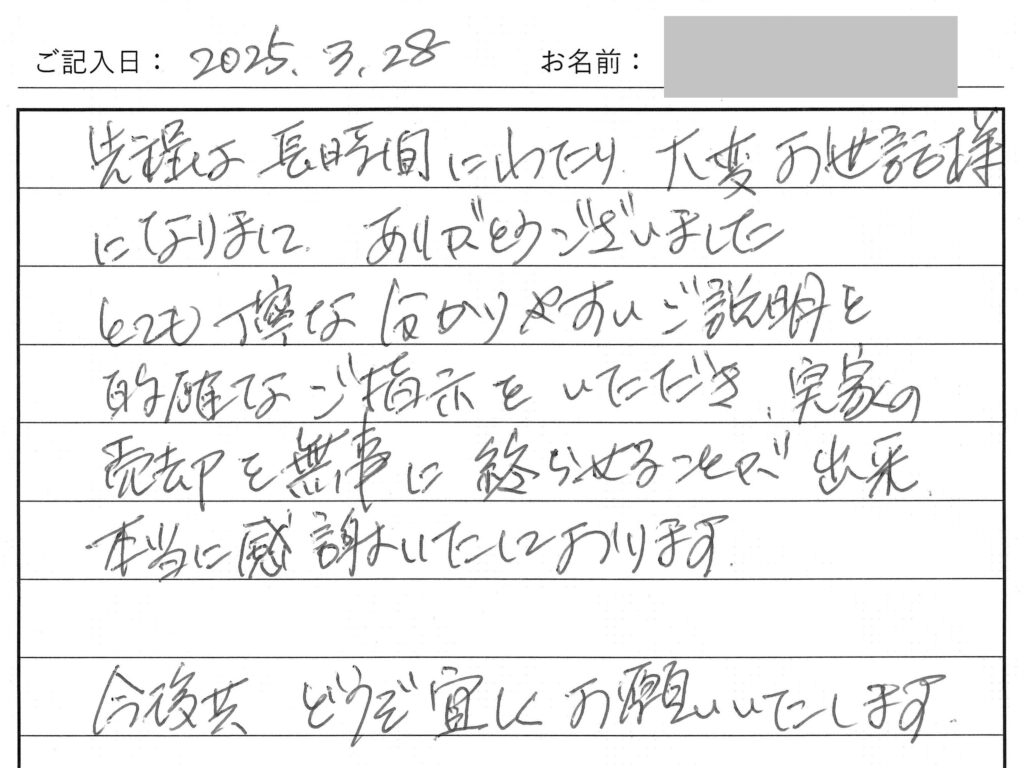 ご記入日： 2025.3.28 お名前：
先程は 長時間にわたり 大変お世話様
になりまして ありがとうございました
とても丁寧な分かりやすいご説明と
的確なご指示をいただき、実家の
売却を無事に終らせることが出来
本当に感謝いたしております
今後共 どうぞ宜しくお願いいたします